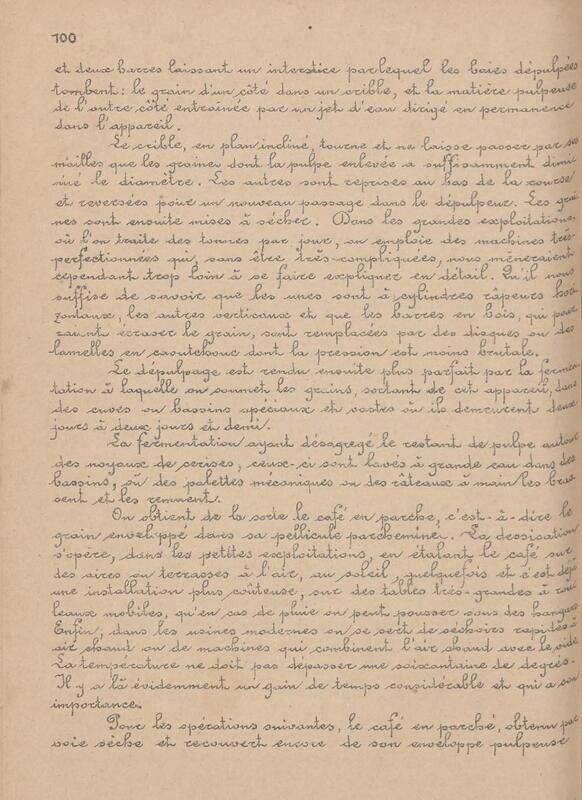 100
et deux barres laissant un interstice par lequel les baies dépulpées
tombent : le grain d'un côté dans un crible, et la matière pulpeuse
de l'autre côté entraînée par un jet d'eau dirigé en permanence
dans l'appareil.
Le crible, en plan incliné, tourne et ne laisse passer par ses
mailles que les graines dont la pulpe enlevée a suffisamment dimi
nué le diamètre. Les autres sont reprises au bas de la course
et reversées pour un nouveau passage dans le dépulpeur. Les grai
nes sont ensuite mises à sécher. Dans les grandes exploitations,
où l'on traite des tonnes par jour, on emploie des machines très-
perfectionnées qui, sans être très-compliquées, nous mèneraient
cependant trop loin à se faire expliquer en détail. Qu'il nous
suffise de savoir que les unes sont à cylindres râpeurs hori
zontaux, les autres verticaux et que les barres en bois, qui pour
raient écraser le grain, sont remplacées par des disques ou des
lamelles en caoutchouc dont la pression est moins brutale.
Le dépulpage est rendu ensuite plus parfait par la fermen
tation à laquelle on soumet les grains, sortant de cet appareil, dans
des cuves ou bassins spéciaux et vastes où ils demeurent deux
jours à deux jours et demi.
La fermentation ayant désagregé le restant de pulpe autour
des noyaux de cerises, ceux-ci sont lavés à grande eau dans des
bassins, où des palettes mécaniques ou des râteaux à main les bras
sent et les remuent.
On obtient de la sorte le café en parche, c'est-à-dire le
grain enveloppé dans sa pellicule parcheminée. La dessication
s'opère, dans les petites exploitations, en étalant le café sur
des aires ou terrasses à l'air, au soleil, quelquefois et c'est déjà
une installation plus coûteuse, sur des tables très-grandes à rou
leaux mobiles, qu'en cas de pluie on peut pousser sous des hangars
Enfin, dans les usines modernes on se sert de séchoirs rapides à
air chaud ou de machines qui combinent l'air chaud avec le vide
La température ne doit pas dépasser une soixantaine de degrés.
Il y a là évidemment un gain de temps considérable et qui a son
importance.
Pour les opérations suivantes, le café en parché, obtenu par
voie sèche et recouvert encore de son enveloppe pulpeuse